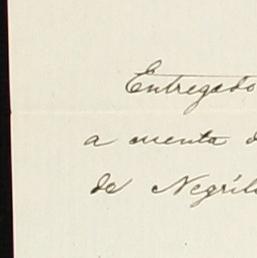 Entregado
a cuenta d
de Negril